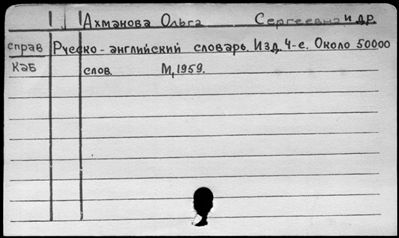 Ахманова Ольга Сергеевна и др.
справ Русско-английский словарь. Изд. 4-е. Около 50000
каб слов. М, 1959.